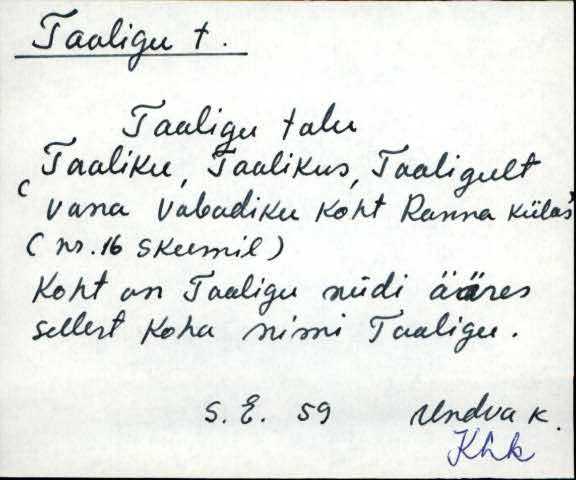 Taaligu t.
Taaligu talu
Taaliku, Taalikus, Taaligult
( vana vabadiku koht Ranna külas)
( nr. 16 skeemil )
Koht on Taaligu niidi ääres
sellest koha nimi Taaligu.
S. E. 59 Undva k.
Khk